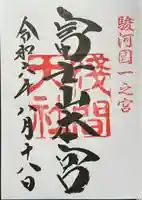 駿河國一之宮
富士山本宮
浅間大社
令和六年八月十八日